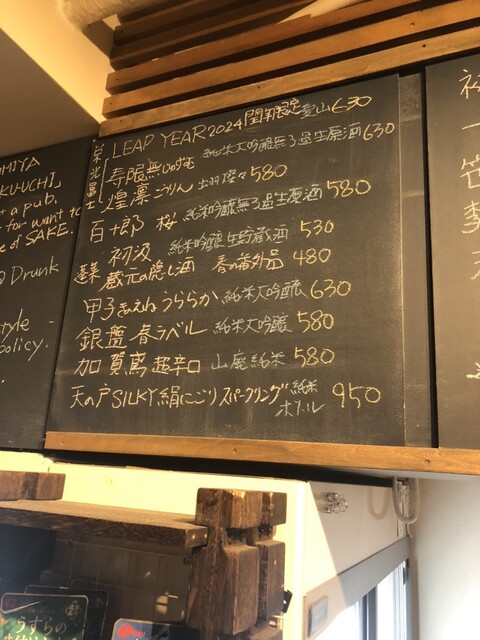 MIYA
KU-UCHI」
t a pub.
for want to
e of SAKE.
Drunk
tyle
policy.
栄光冨士
LEAP YEAR 2024 閏年限定 愛山 630
寿限無 じゅげむ 純米大吟醸無ろ過生原酒 630
煌凛 こうりん 出羽燦々 580
百十郎 桜 純米吟醸無ろ過生原酒 580
初汲 純米吟醸生貯蔵酒 530
蓬莱 蔵元の隠し酒 春の番外品 480
甲子 きのえね うららか 純米大吟醸 630
銀盤 春ラベル 純米大吟醸 580
加賀鳶 超辛口 山廃純米 580
天の戸 SILKY 絹にごり スパークリング 純米 ボトル 950
初
一
笹
李
天
うすらの